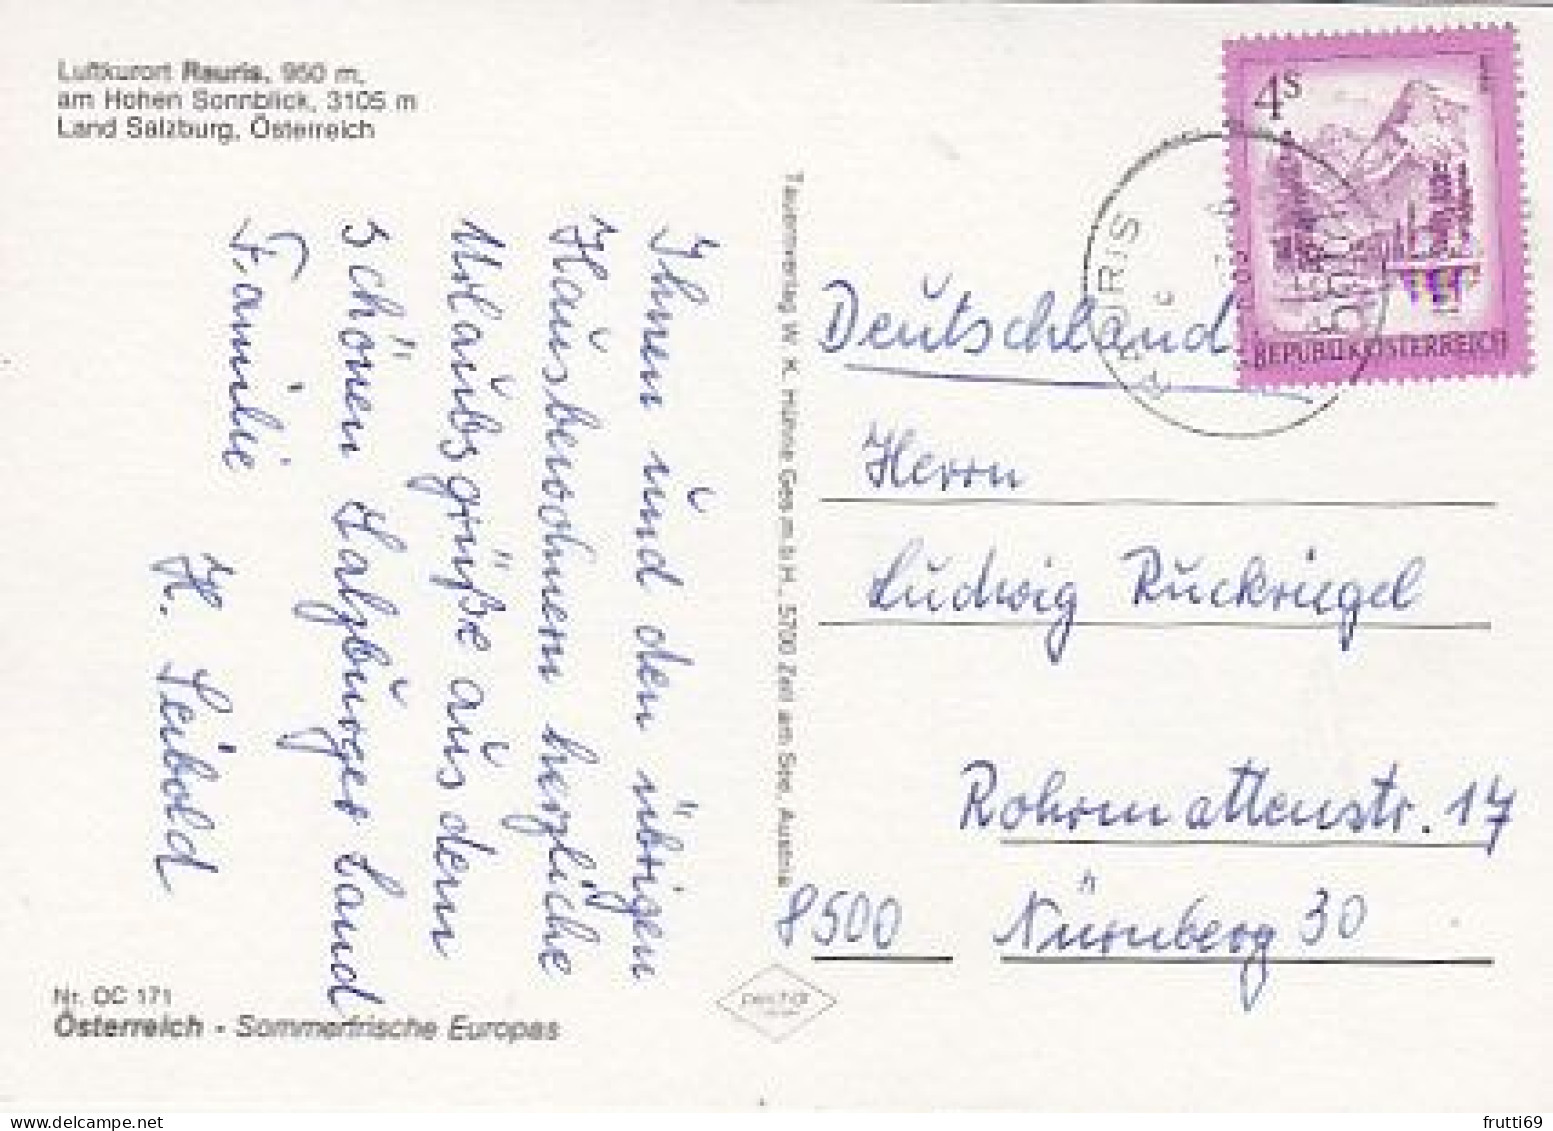 Luftkurort Rauris, 950 m,
am Hohen Sonnblick, 3105 m
Land Salzburg, Österreich
Ihnen und den übrigen
Hausbewohnern herzliche
Urlaubsgrüße aus dem
schönen Salzburger Land
Familie
H. Seibold
Nr. OC 171
Österreich - Sommerfrische Europas
Tauernverlag W. K. Hühne Ges.m.b.H., 5700 Zell am See, Austria
4S
REPUBLIK ÖSTERREICH
RAURIS
Deutschland
Herrn
Ludwig Rückriegel
Rohrmattenstr. 17
8500 Nürnberg 30
frutti69